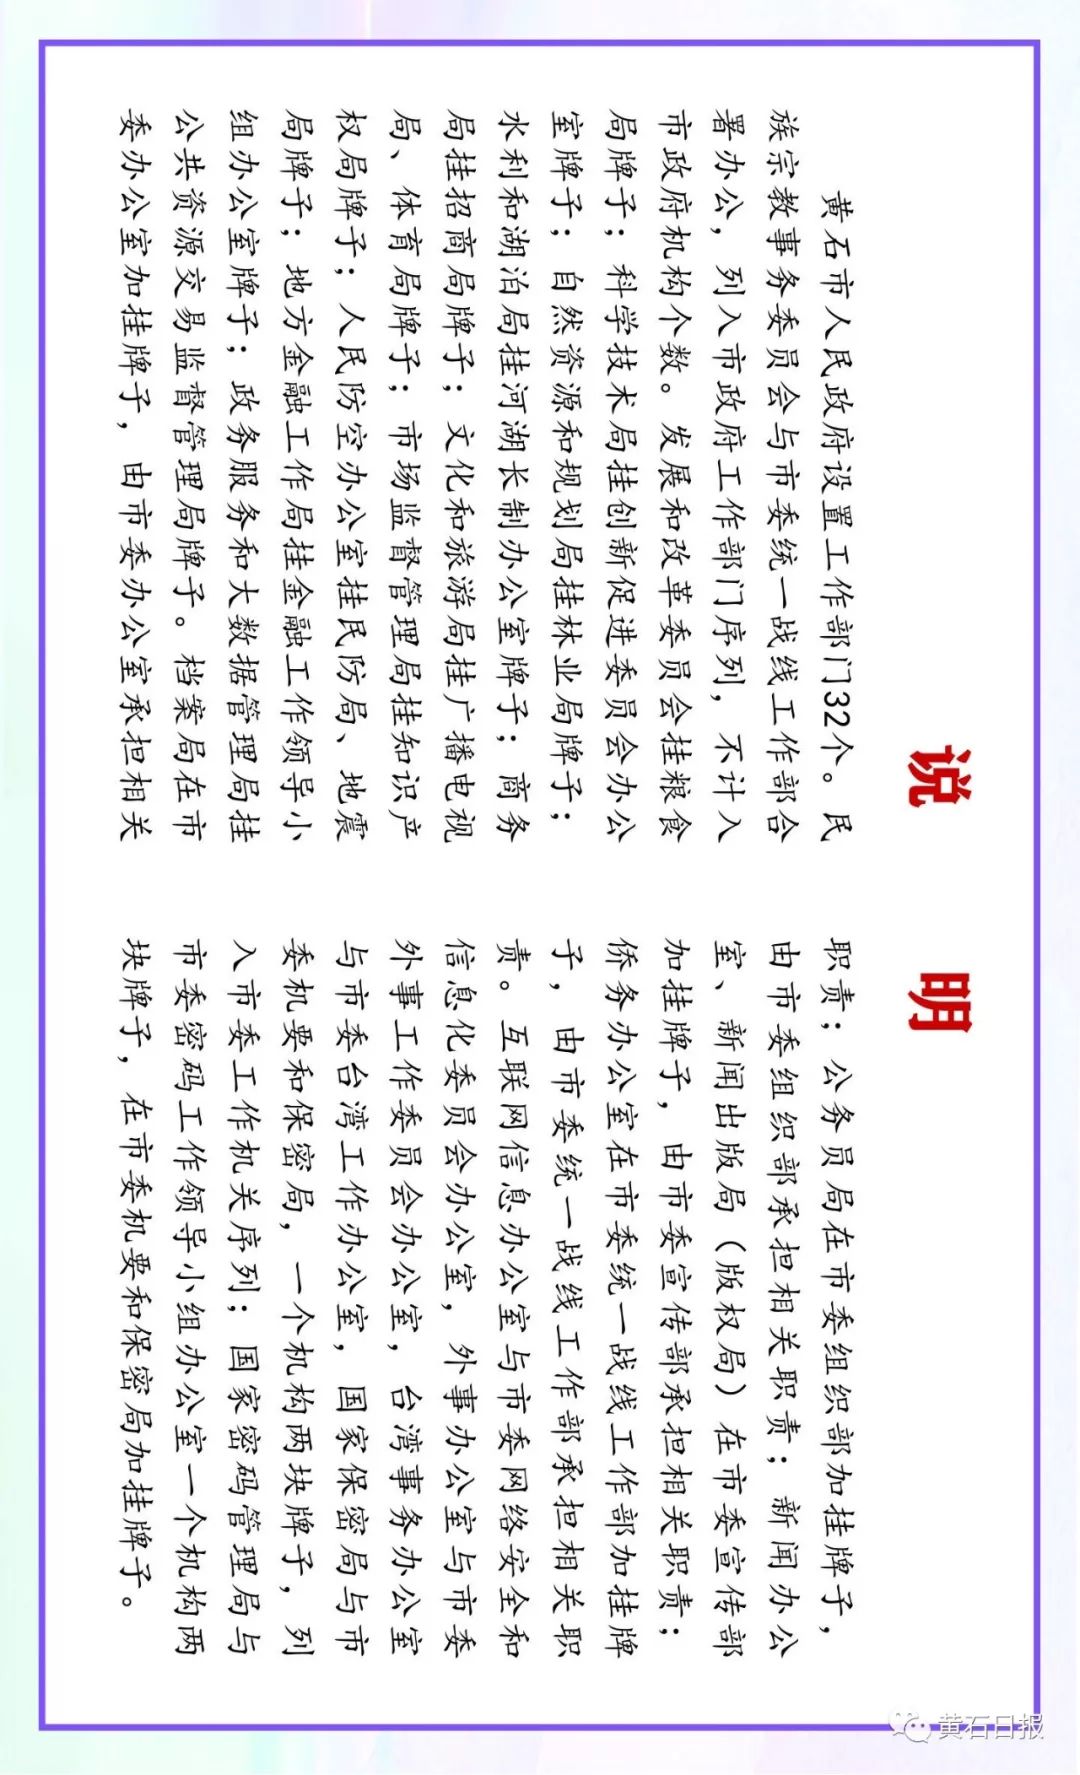 说 明
黄石市人民政府设置工作部门32个。民
族宗教事务委员会与市委统一战线工作部合
署办公，列入市政府工作部门序列，不计入
市政府机构个数。发展和改革委员会挂粮食
局牌子；科学技术局挂创新促进委员会办公
室牌子；自然资源和规划局挂林业局牌子；
水利和湖泊局挂河湖长制办公室牌子；商务
局挂招商局牌子；文化和旅游局挂广播电视
局、体育局牌子；市场监督管理局挂知识产
权局牌子；人民防空办公室挂民防局、地震
局牌子；地方金融工作局挂金融工作领导小
组办公室牌子；政务服务和大数据管理局挂
公共资源交易监督管理局牌子。档案局在市
委办公室加挂牌子，由市委办公室承担相关
职责；公务员局在市委组织部加挂牌子，
由市委组织部承担相关职责；新闻办公
室、新闻出版局（版权局）在市委宣传部
加挂牌子，由市委宣传部承担相关职责；
侨务办公室在市委统一战线工作部加挂牌
子，由市委统一战线工作部承担相关职
责。互联网信息办公室与市委网络安全和
信息化委员会办公室，外事办公室与市委
外事工作委员会办公室，台湾事务办公室
与市委台湾工作办公室，国家保密局与市
委机要和保密局，一个机构两块牌子，列
入市委工作机关序列；国家密码管理局与
市委密码工作领导小组办公室一个机构两
块牌子，在市委机要和保密局加挂牌子。
黄石日报